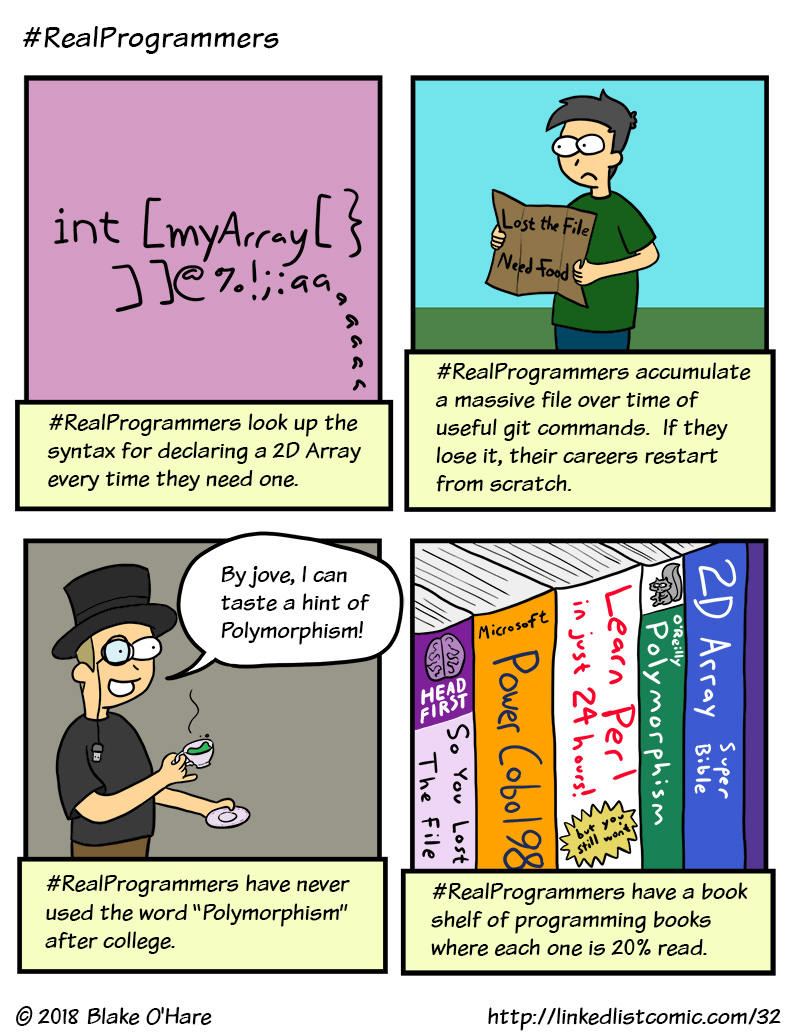 #RealProgrammers
int [myArray[}
]]@%!;:aa
aaaaa
#RealProgrammers look up the
syntax for declaring a 2D Array
every time they need one.
Lost the File
Need Food
#RealProgrammers accumulate
a massive file over time of
useful git commands. If they
lose it, their careers restart
from scratch.
By jove, I can
taste a hint of
Polymorphism!
#RealProgrammers have never
used the word “Polymorphism”
after college.
HEAD
FIRST
So You Lost
The File
Microsoft
Power Cobol 98
Learn Perl
in just 24 hours!
but you
still won't
O'Reilly
Polymorphism
2D Array
Super
Bible
#RealProgrammers have a book
shelf of programming books
where each one is 20% read.
© 2018 Blake O'Hare
http://linkedlistcomic.com/32